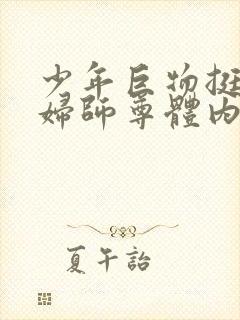 少年巨物挺
婦師尊體內
夏午詒